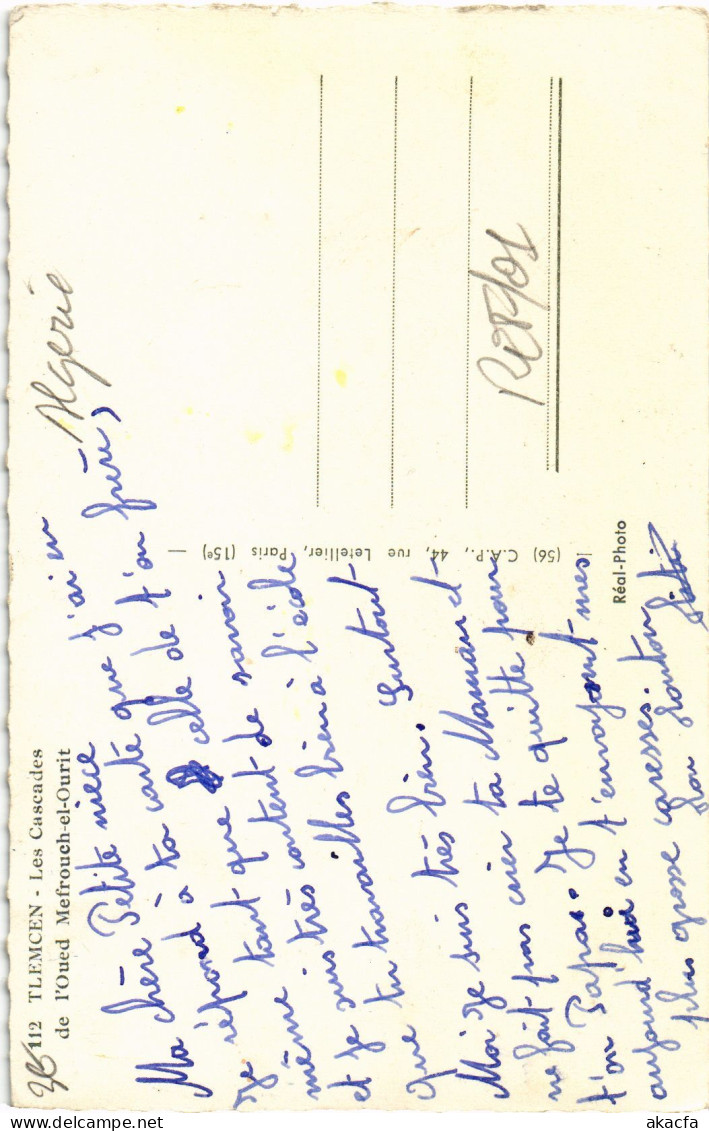 36
112 TLEMCEN - Les Cascades
de l'Oued Mefrouch-el-Ourit
Algerie
Ma chère Petite nièce
Je répond à ta carte que j'ai eu
même tant que celle de t'on frère,
et je suis très content de savoir
que tu travailles bien à l'école
Moi je suis très bien. Surtout
ne fait pas crier ta Maman et
t'on Papa. Je te quitte pour
aujourd'hui en t'envoyant mes
plus grosse caresses. ton
(56) C.A.P., 44, rue Letellier, Paris (15e)
Réal-Photo
akacfa